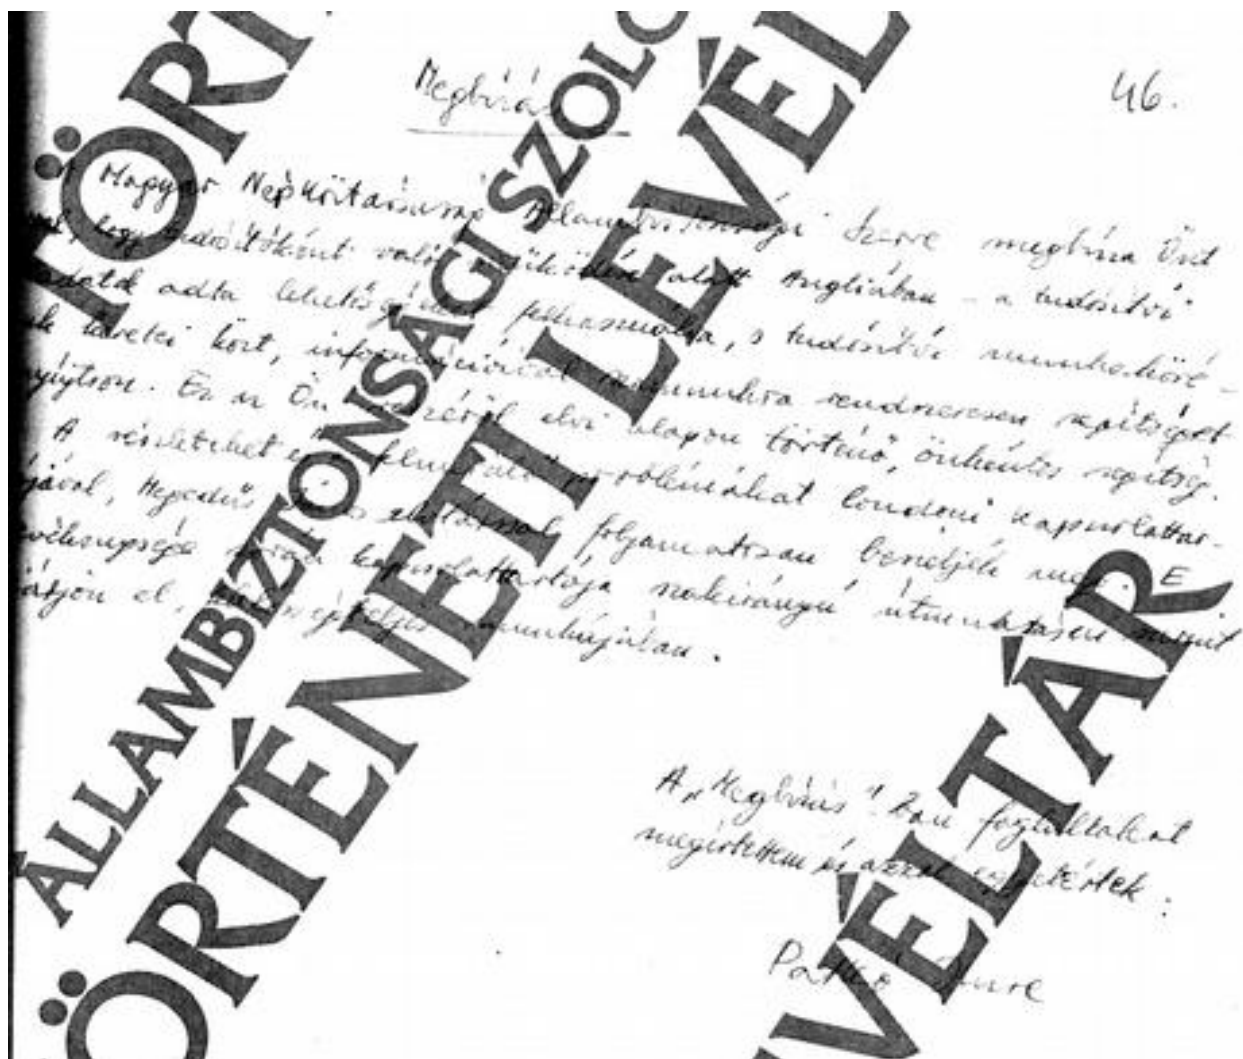 46.
Megbízás
Magyar Népköztársaság Állambiztonsági Szerve megbízza Önt
hogy tudósítóként való működése alatt Angliában – a tudósítói
adta lehetőségeket felhasználva, s tudósítói munkaköré-
keretei közt, információival munkánkra rendszeresen segítséget
nyújtson. Ez az Ön részéről elvi alapon történő, önkéntes segítség.
A részleteket és a felmerülő problémákat londoni kapcsolattar-
tójával, Hegedűs folyamatosan beszéljék meg. E
tevékenysége során kapcsolattartója szakirányú útmutatásai szerint
járjon el, munkájában.
A „Megbízás"-ban foglaltakat
megértettem és azzal egyetértek:
Patkó Imre
ÁLLAMBIZTONSÁGI SZOLG
TÖRTÉNETI LEVÉL
VÉLTÁR